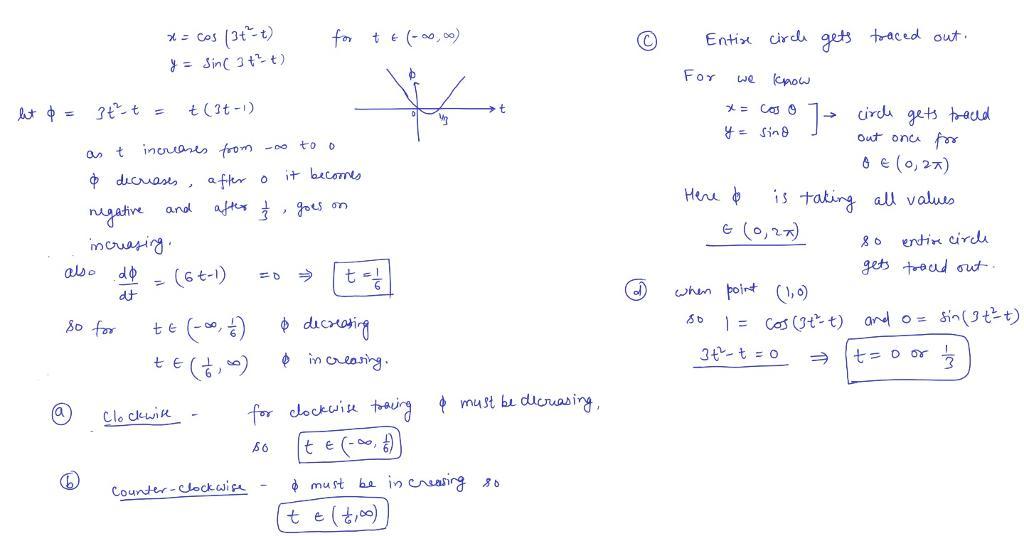 x = cos (3t²-t) for t ∈ (-∞, ∞)
y = Sin( 3t²-t)
let ϕ = 3t²-t = t(3t-1)
ϕ
t
0 1/3
as t increases from -∞ to 0
ϕ decreases, after 0 it becomes
negative and after 1/3, goes on
increasing.
also dϕ/dt = (6t-1) =0 ⇒ t = 1/6
so for t ∈ (-∞, 1/6) ϕ decreasing
t ∈ (1/6, ∞) ϕ increasing.
(a) Clockwise - for clockwise tracing ϕ must be decreasing,
so t ∈ (-∞, 1/6)
(b) Counter-clockwise - ϕ must be increasing so
t ∈ (1/6, ∞)
(c) Entire circle gets traced out.
For we know
x = cos θ
y = sinθ
] → circle gets traced
out once for
θ ∈ (0, 2π)
Here ϕ is taking all values
∈ (0, 2π)
so entire circle
gets traced out.
(d) when point (1,0)
so 1 = cos(3t²-t) and 0 = sin(3t²-t)
3t²-t = 0 ⇒ t = 0 or 1/3